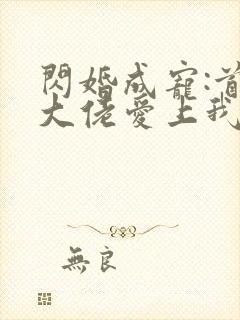 閃婚成寵:首
大佬愛上我
無良